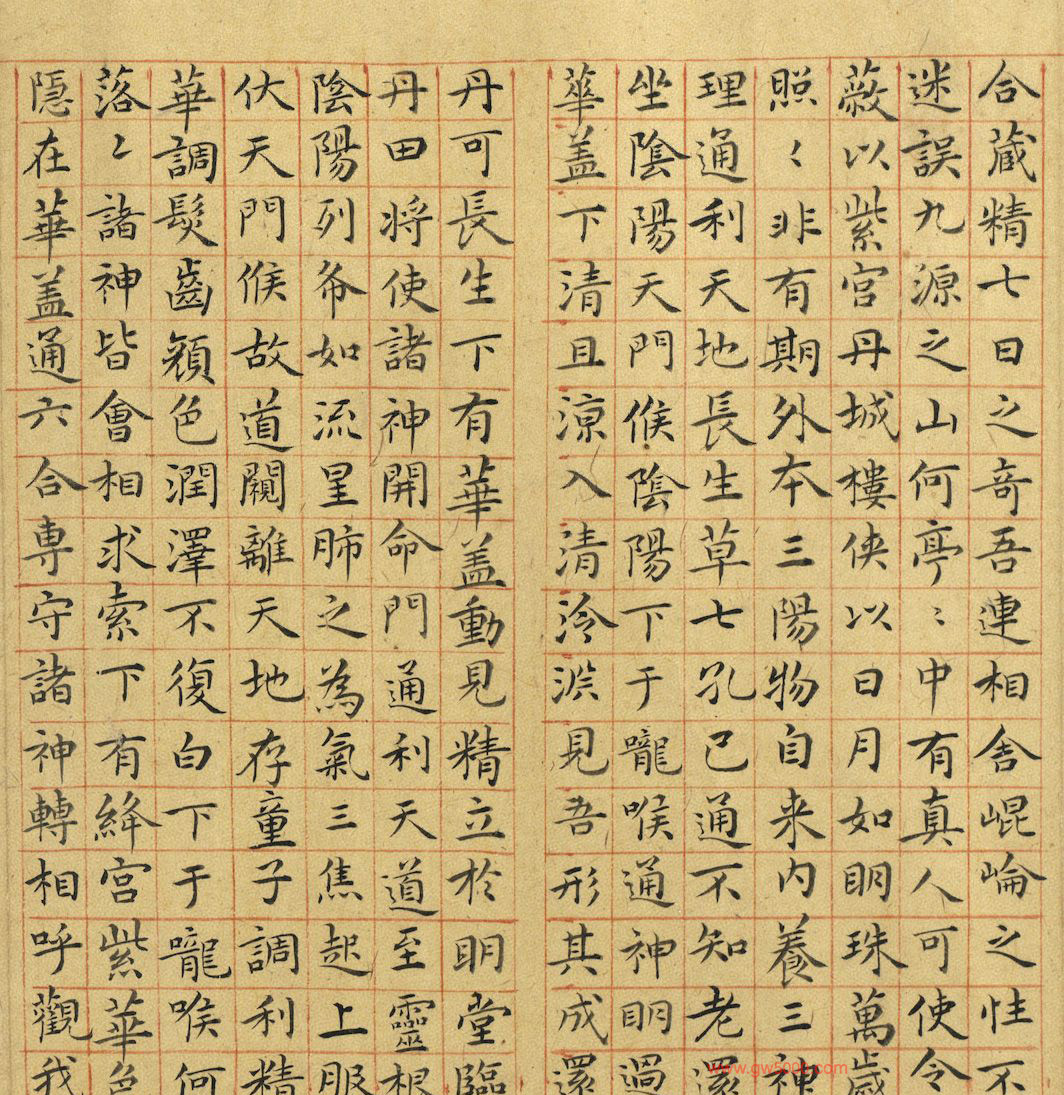 合藏精七日之奇吾連相舍崐崘之性不
迷誤九源之山何亭〻中有真人可使令
蔽以紫宮丹城樓俠以日月如明珠萬歲
照〻非有期外本三陽物自来内養三神
理通利天地長生草七孔已通不知老還
坐陰陽天門候陰陽下于嚨喉通神明過
華盖下清且涼入清泠淵見吾形其成還
丹可長生下有華盖動見精立於明堂臨
丹田将使諸神開命門通利天道至靈根
陰陽列布如流星肺之為氣三焦起上服
伏天門候故道闚離天地存童子調利精
華調髮齒顏色潤澤不復白下于嚨喉何
落〻諸神皆會相求索下有絳宮紫華色
隱在華盖通六合専守諸神轉相呼觀我